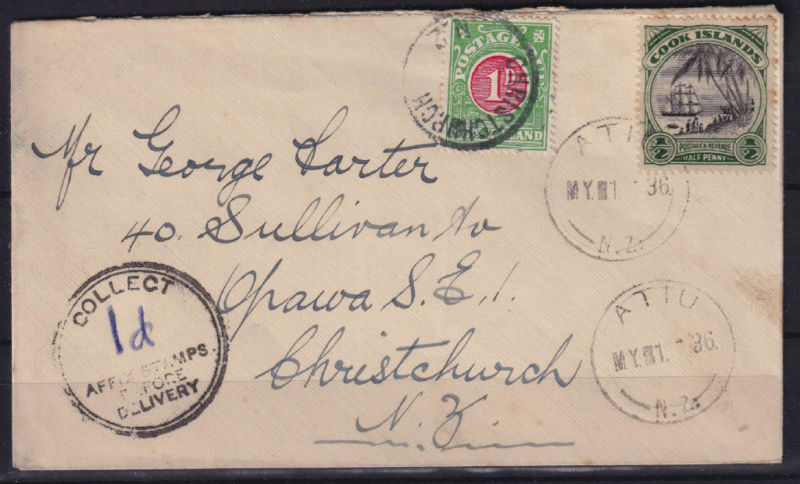 POSTAGE
1D
CHRISTCHURCH
N.Z.
COOK ISLANDS
1/2 POSTAGE & REVENUE 1/2
HALF PENNY
ATIU
MY. 1. 36.
N.Z.
Mr George Karter
40. Sullivan Av
Opawa S.E.1.
Christchurch
N.Z.
COLLECT
1d
AFFIX STAMPS
BEFORE
DELIVERY
ATIU
MY. 1. 36.
N.Z.